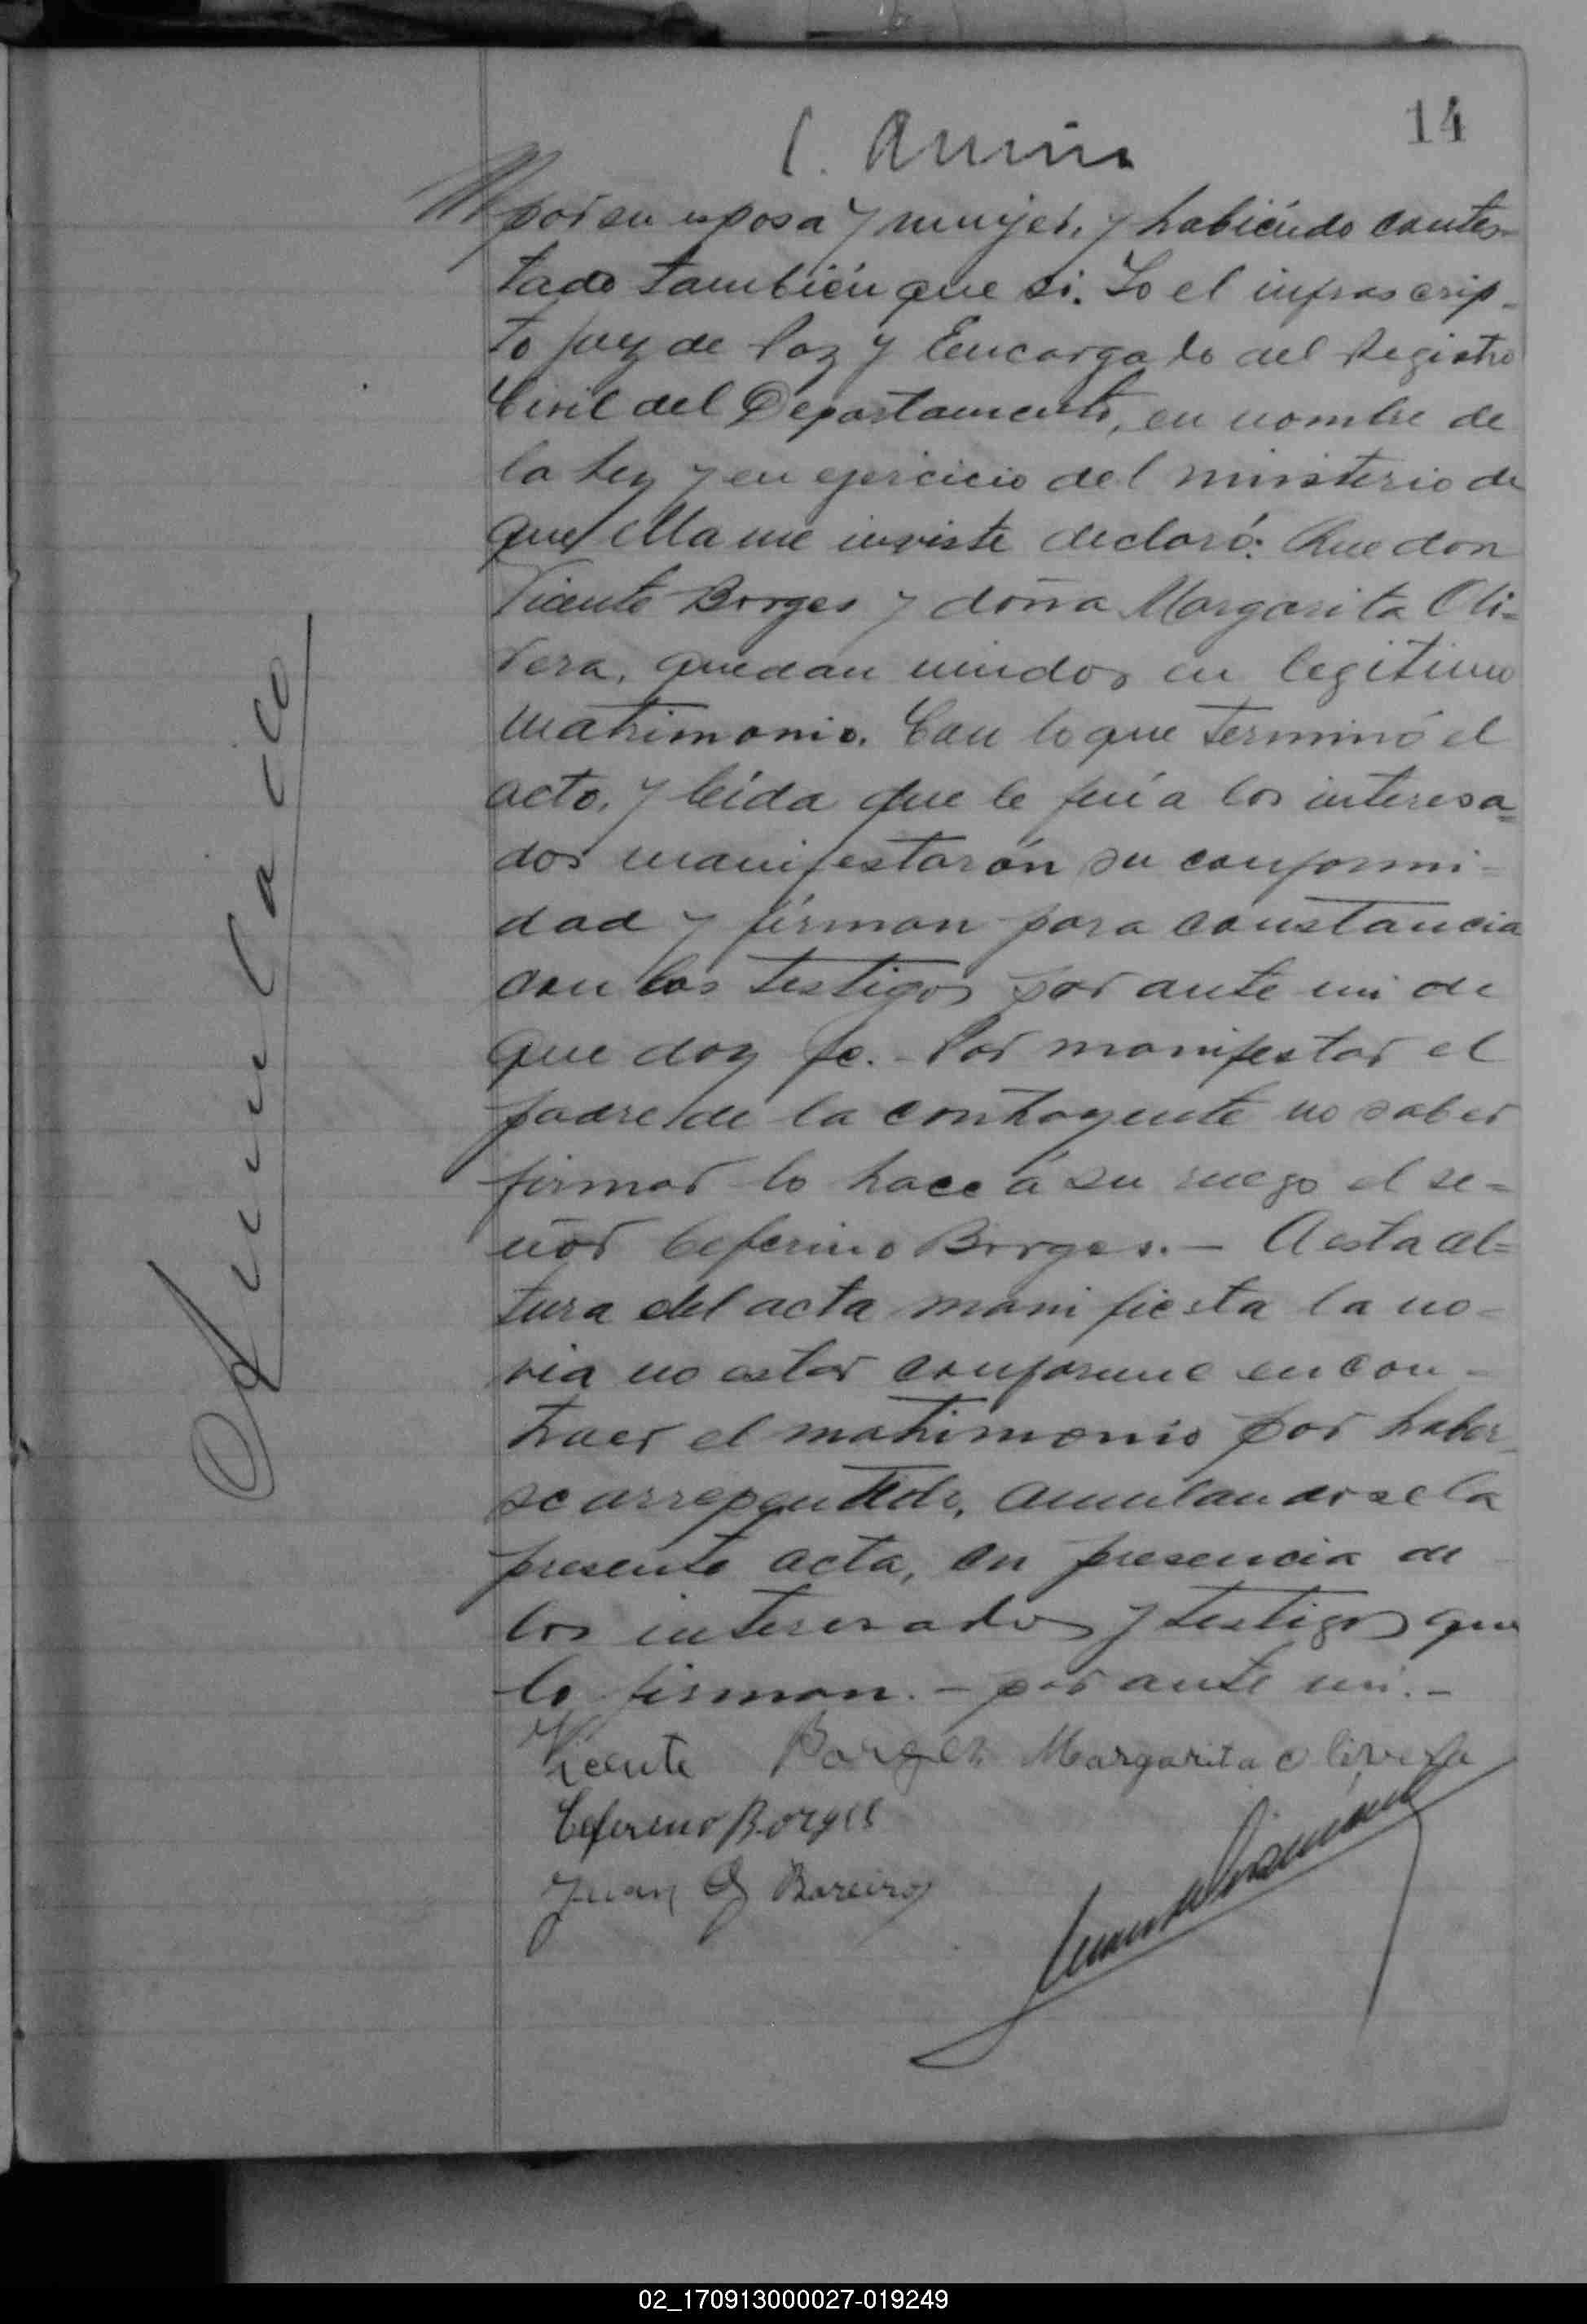 14
por su esposa y mujer, y habiéndo contes-
tado también que si. Yo el infrascrip-
to juez de Paz y Encargado del Registro
Civil del Departamento, en nombre de
la ley y en ejercicio del ministerio de
que ella me inviste declaró: Que don
Vicente Borges y doña Margarita Oli=
vera, quedan unidos en legitimo
matrimonio. Con lo que terminó el
acto, y leída que le fué a los interesa=
dos manifestarón su conformi-
dad y firman para constancia
con los testigos por ante mi de
que doy fe. - Por manifestar el
padre de la contrayente no saber
firmar lo hace á su ruego el se=
ñor Ceferino Borges. - A esta al=
tura del acta manifiesta la no-
via no estar conforme en con-
traer el matrimonio por haber-
se arrepentido, anulandose la
presente acta, en presencia de
los interesados y testigos que
lo firman. - por ante mi. -
Vicente Borges Margarita olivera
Ceferino Borges
Juan Bareiro